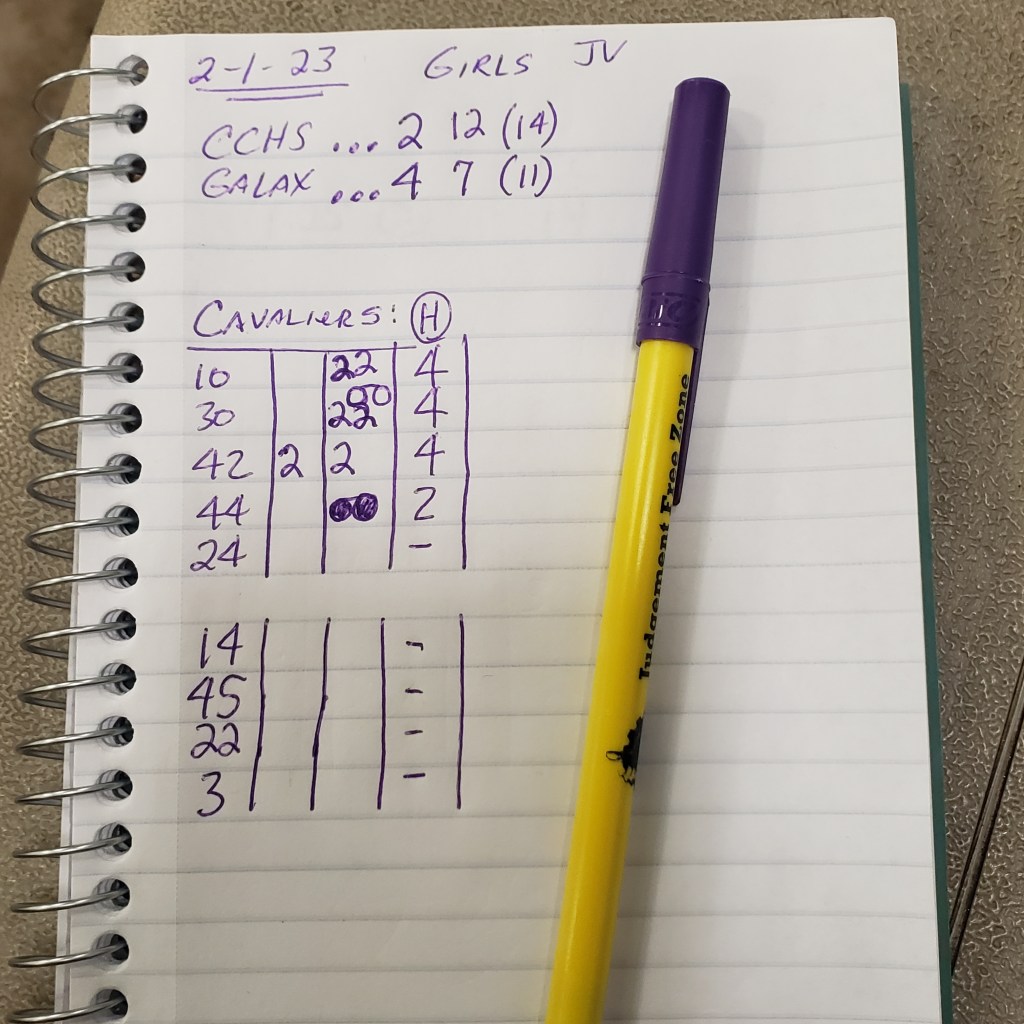 2-1-23 GIRLS JV
CCHS ... 2 12 (14)
GALAX ... 4 7 (11)
CAVALIERS: H
10 22 4
30 22 00 4
42 2 2 4
44 2
24 -
14 -
45 -
22 -
3 -
Judgement Free Zone